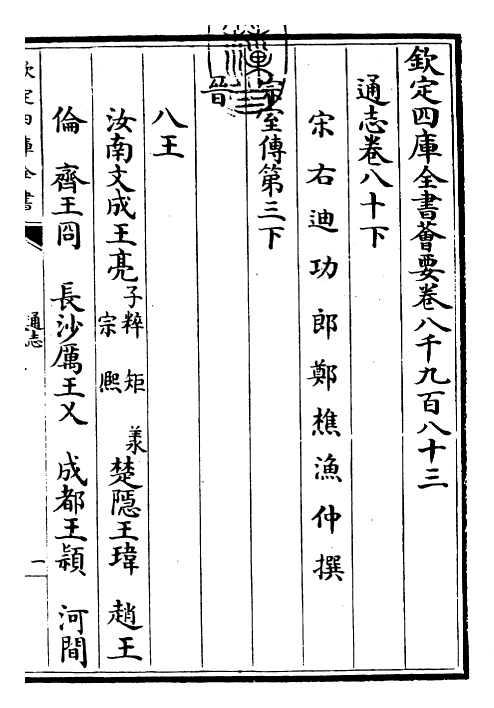 欽定四庫全書薈要卷八千九百八十三
通志卷八十下
宋右迪功郎鄭樵漁仲撰
宗室傳第三下
晉
八王
汝南文成王亮子粹矩羕宗熈楚隱王瑋趙王
倫齊王冏長沙厲王乂成都王穎河間
欽定四庫全書
通志
一